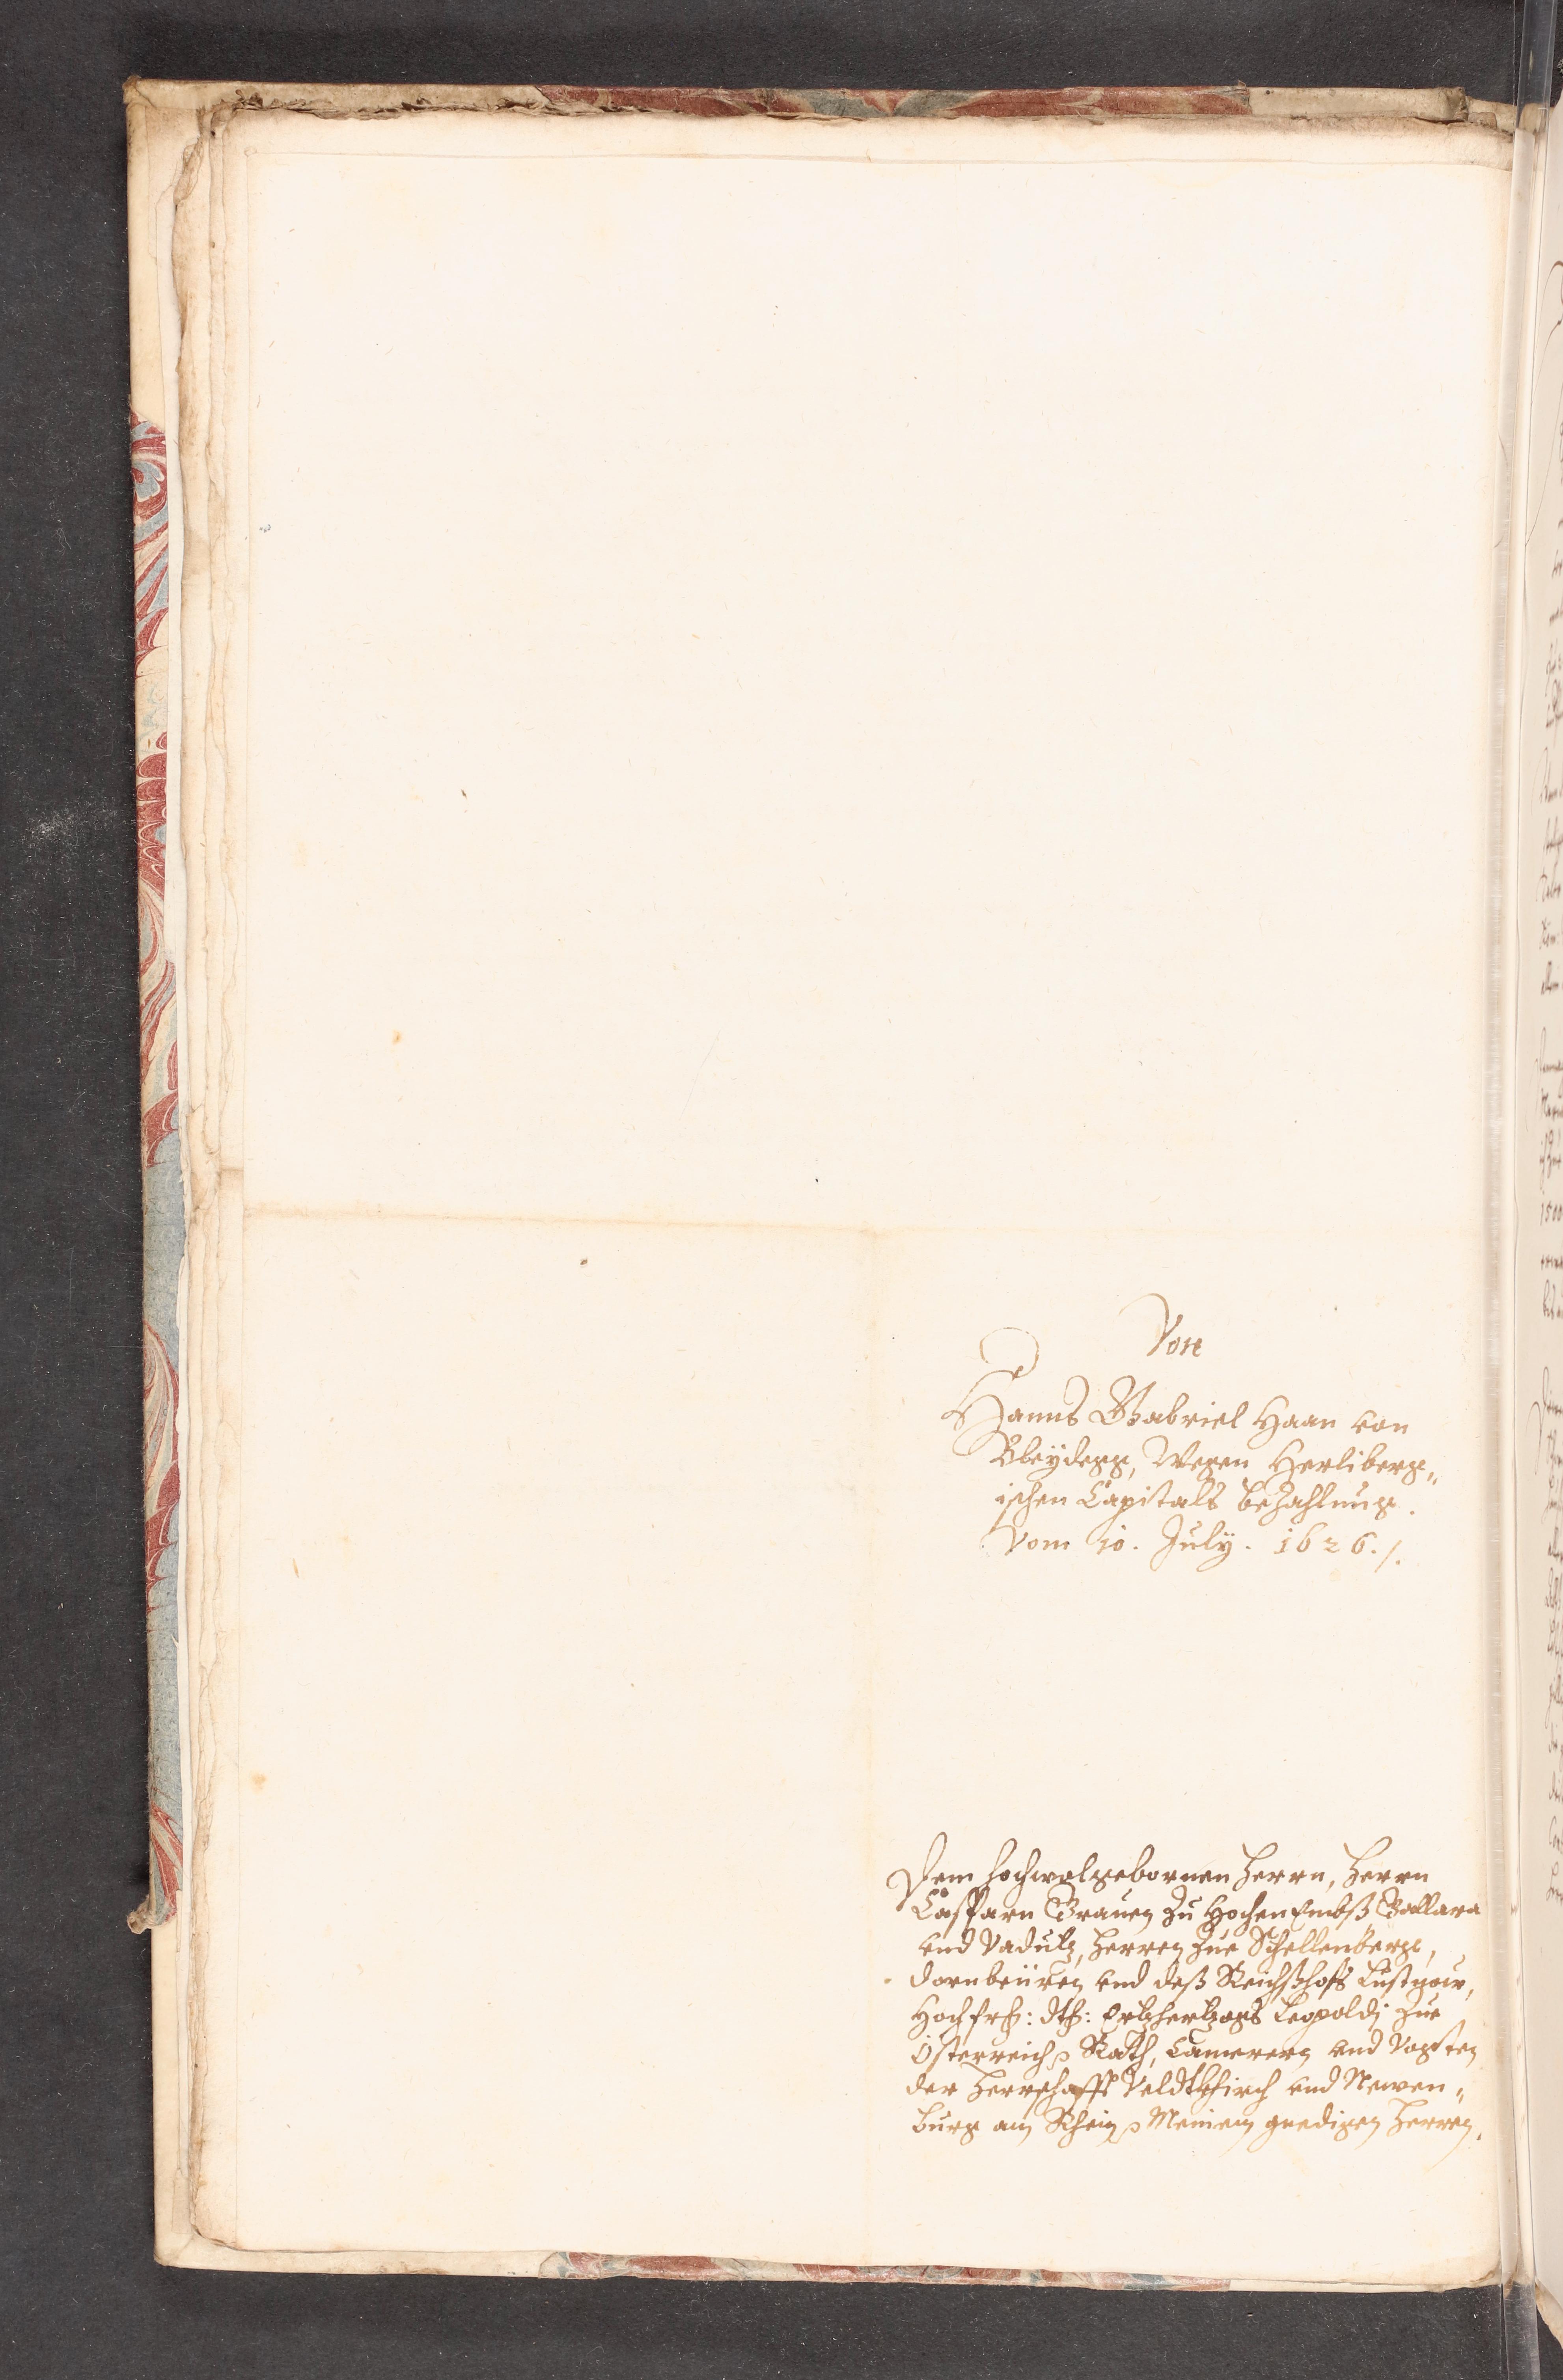 Von
Hanns Gabriel Haan von
Bleÿdegg, Wegen Herliberg„
ischen Capitals bezahlung.
Vom 10. Julÿ. 1626./.
Dem hochwolgebornen Herrn, Herrn
Casparn Graven zu HochenEmbß, Gallara
vnd Vadutz, Herren zue Schellenberg,
Dornbeüren vnd deß Reichßhofs Lustnow,
Hochfrh: dth: Ertzhertzogs Leopoldj zue
Österreich Rath, Camerern vnd Vogten
der Herrschafft Veldtkhirch vnd Newen„
burg am Rhein Meinem gnedigen Herren.